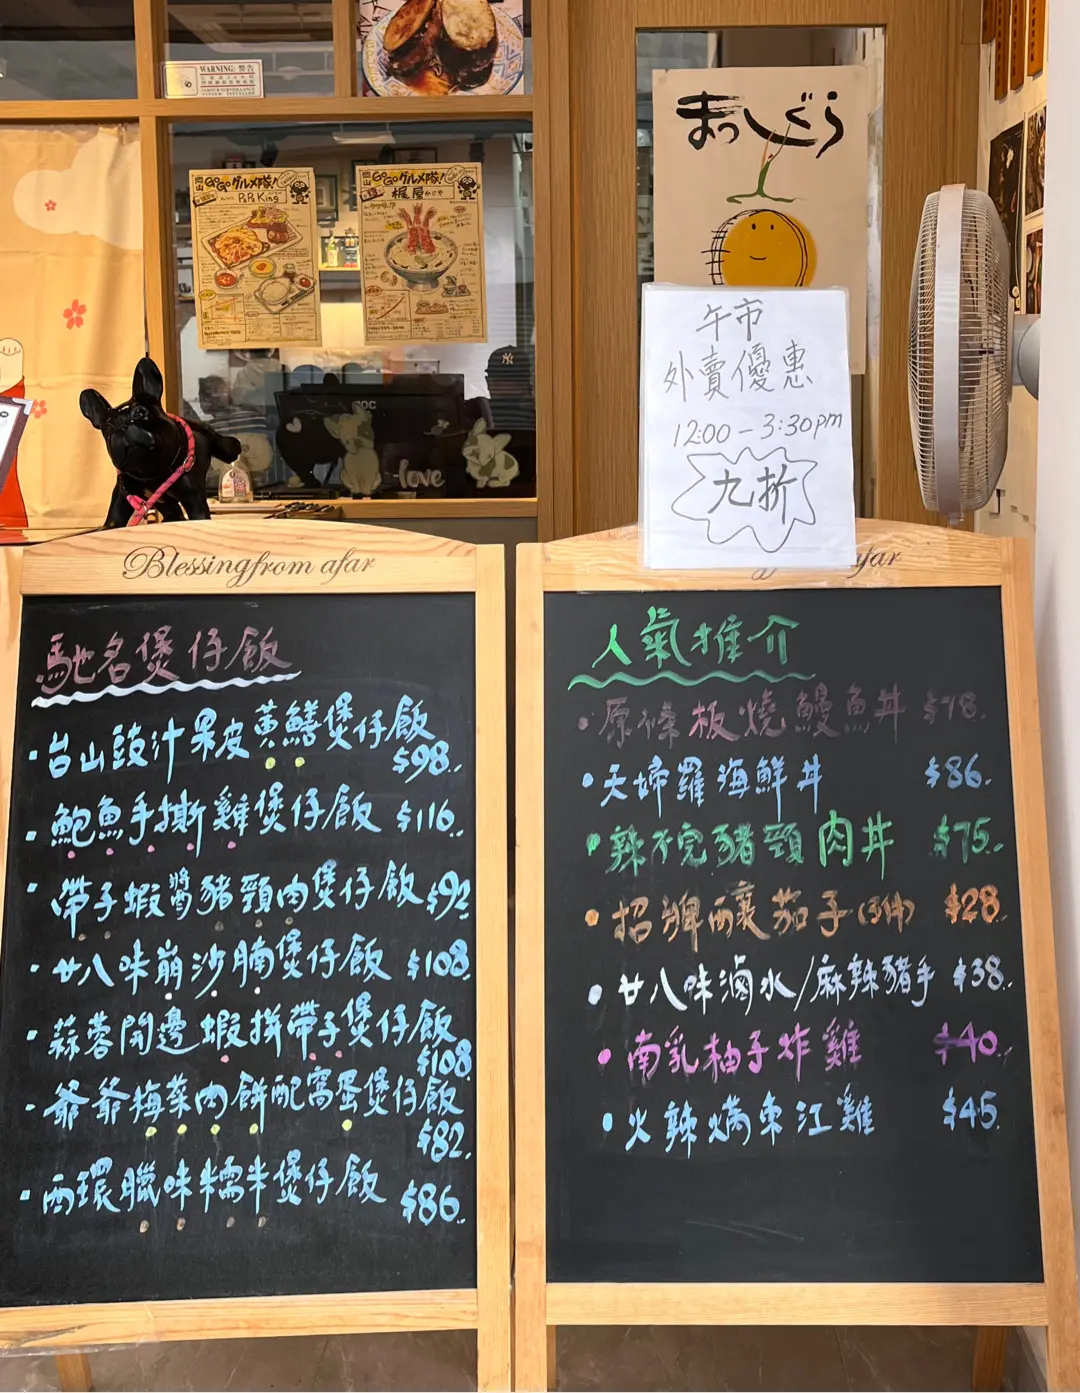 WARNING: 警告
まっしぐら
GOGOグルメ隊!
P.P. King
GOGOグルメ隊!
梶屋
午市
外賣優惠
12:00-3:30pm
九折
love
Blessing from afar
馳名煲仔飯
·台山豉汁果皮黄鱔煲仔飯
$98.
·鮑魚手撕雞煲仔飯 $116.
·帶子蝦醬豬頸肉煲仔飯 $92
·廿八味崩沙腩煲仔飯 $108.
·蒜蓉開邊蝦拼帶子煲仔飯
$108
·爺爺梅菜肉餅配窩蛋煲仔飯
$82.
·西環臘味糯米煲仔飯 $86.
afar
人氣推介
·原條板燒鰻魚丼 $78.
·天婦羅海鮮丼 $86.
·辣不完豬頸肉丼 $75.
·招牌釀茄子(3件) $28.
·廿八味滷水/麻辣豬手 $38.
·南乳柚子炸雞 $40.
·火辣焗東江雞 $45.